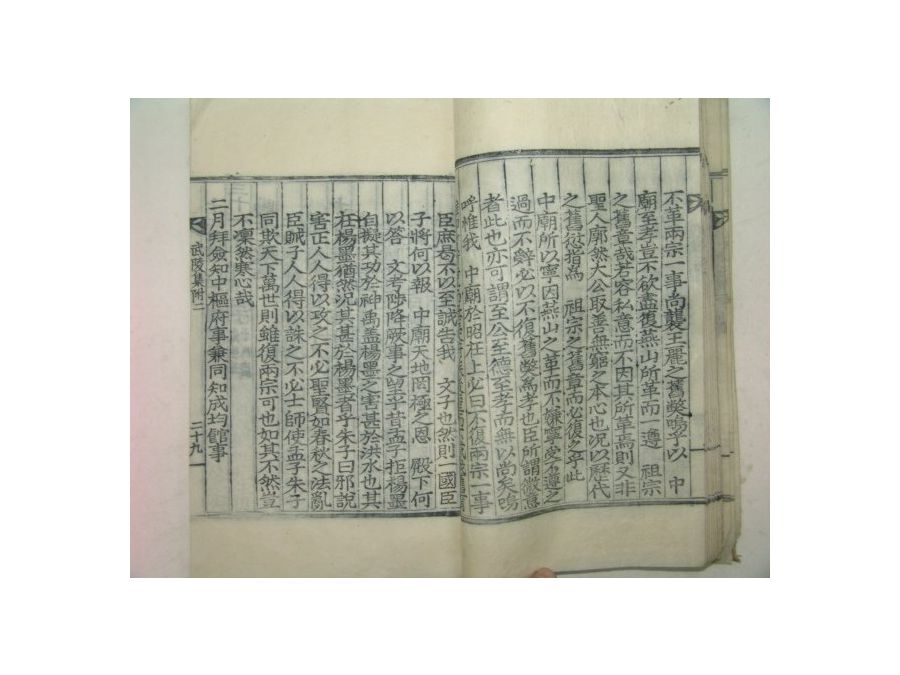 不革兩宗一事尚襲王麗之舊獘嗚乎以 中
廟至孝豈不欲盡復燕山所革而 遵 祖宗
之舊章哉若容私意而不因其所革焉則又非
聖人廓然大公取善無窮之本心也况以歷代
之舊愆指爲 祖宗之舊章而必復之乎此
中廟所以寧因燕山之革而不嫌寧受不遵之
過而不辭必以不復舊獘爲孝也臣所謂微意
者此也亦可謂至公至德至孝而無以尚矣嗚
呼惟我 中廟於昭在上必曰不復兩宗一事
臣庶曷不以至誠告我 文子也然則一國臣
子將何以報 中廟天地罔極之恩 殿下何
以答 文考陟降厥事之望乎昔孟子拒楊墨
自擬其功於神禹盖楊墨之害甚於洪水也其
在楊墨猶然况其甚於楊墨者乎朱子曰邪說
害正人人得以攻之不必聖賢如春秋之法亂
臣賊子人人得以誅之不必士師使孟子朱子
同欺天下萬世則雖復兩宗可也如其不然豈
不凜然寒心哉
二月拜僉知中樞府事兼同知成均館事
武陵集附二
二十九